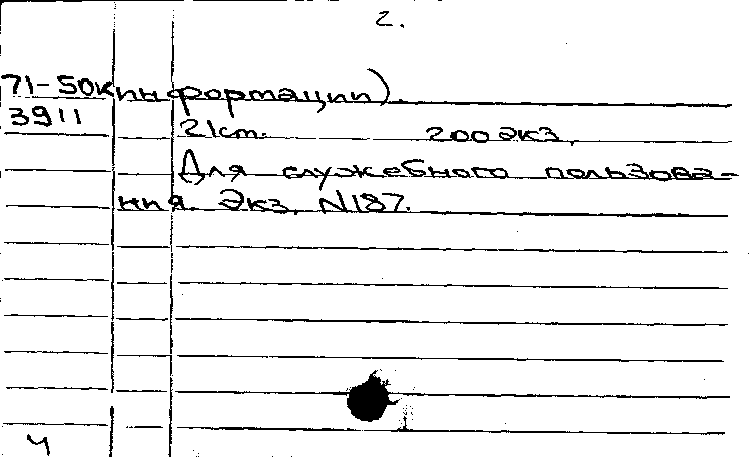 2.
71-50к информации).
3911 21ст. 200 экз.
Для служебного пользова-
ния. Экз. N187.
ч